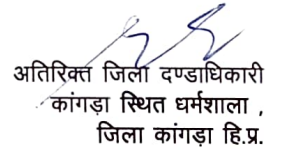 अतिरिक्त जिला दण्डाधिकारी
कांगड़ा स्थित धर्मशाला ,
जिला कांगड़ा हि.प्र.